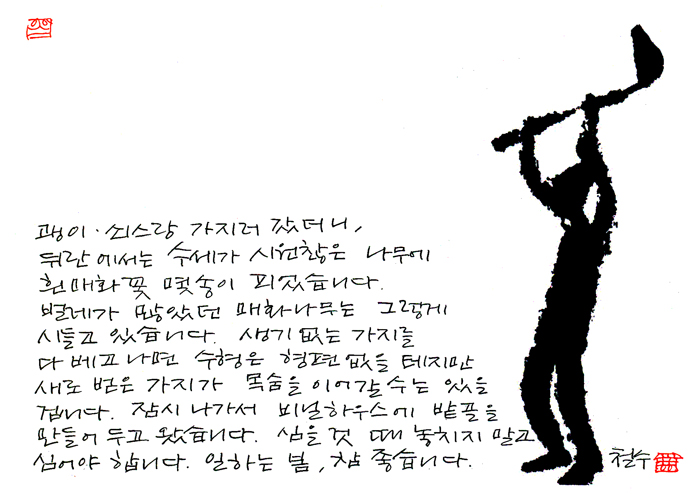 괭이·쇠스랑 가지러 갔더니,
뒤란에서는 수세가 시원찮은 나무에
흰매화꽃 몇송이 피었습니다.
벌레가 많았던 매화나무는 그렇게
시들고 있습니다. 생기 없는 가지를
다 베고 나면 수형은 형편없을 테지만
새로 벋은 가지가 목숨을 이어갈 수는 있을
겁니다. 잠시 나가서 비닐하우스에 밭흙을
만들어 두고 왔습니다. 심을 것 때 놓치지 말고
심어야 합니다. 일하는 봄, 참 좋습니다.
철수